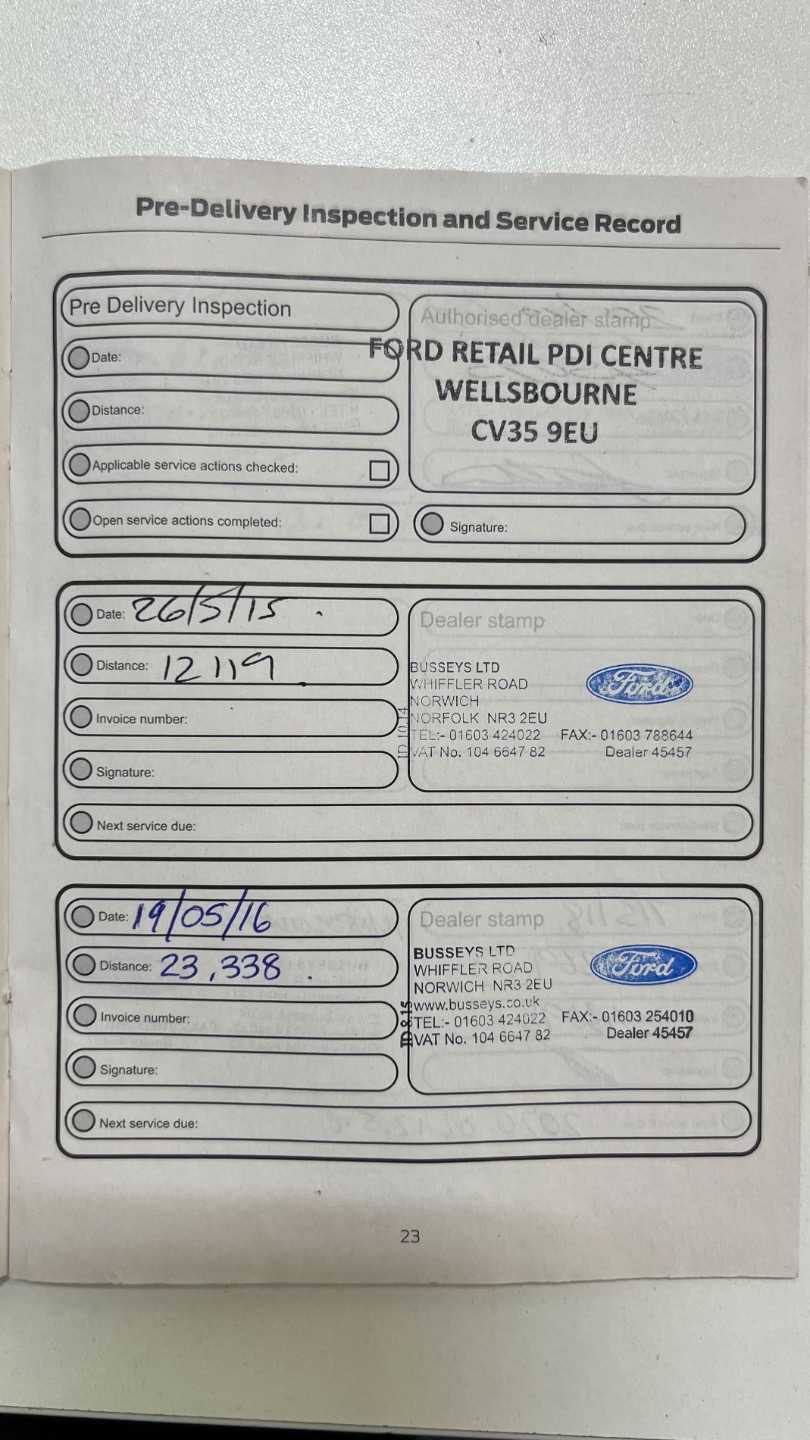 Pre-Delivery Inspection and Service Record
Pre Delivery Inspection
Authorised dealer stamp
Date:
FORD RETAIL PDI CENTRE
WELLSBOURNE
CV35 9EU
Distance:
Applicable service actions checked:
Open service actions completed:
Signature:
Date: 26/5/15
Distance: 12119
Invoice number:
Signature:
Next service due:
Dealer stamp
BUSSEYS LTD
WHIFFLER ROAD
NORWICH
NORFOLK NR3 2EU
TEL:- 01603 424022 FAX:- 01603 788644
VAT No. 104 6647 82 Dealer 45457
Ford
ID 10.14
Date: 19/05/16
Distance: 23,338
Invoice number:
Signature:
Next service due:
Dealer stamp
BUSSEYS LTD
WHIFFLER ROAD
NORWICH NR3 2EU
www.busseys.co.uk
TEL:- 01603 424022 FAX:- 01603 254010
VAT No. 104 6647 82 Dealer 45457
Ford
ID 8.15
23